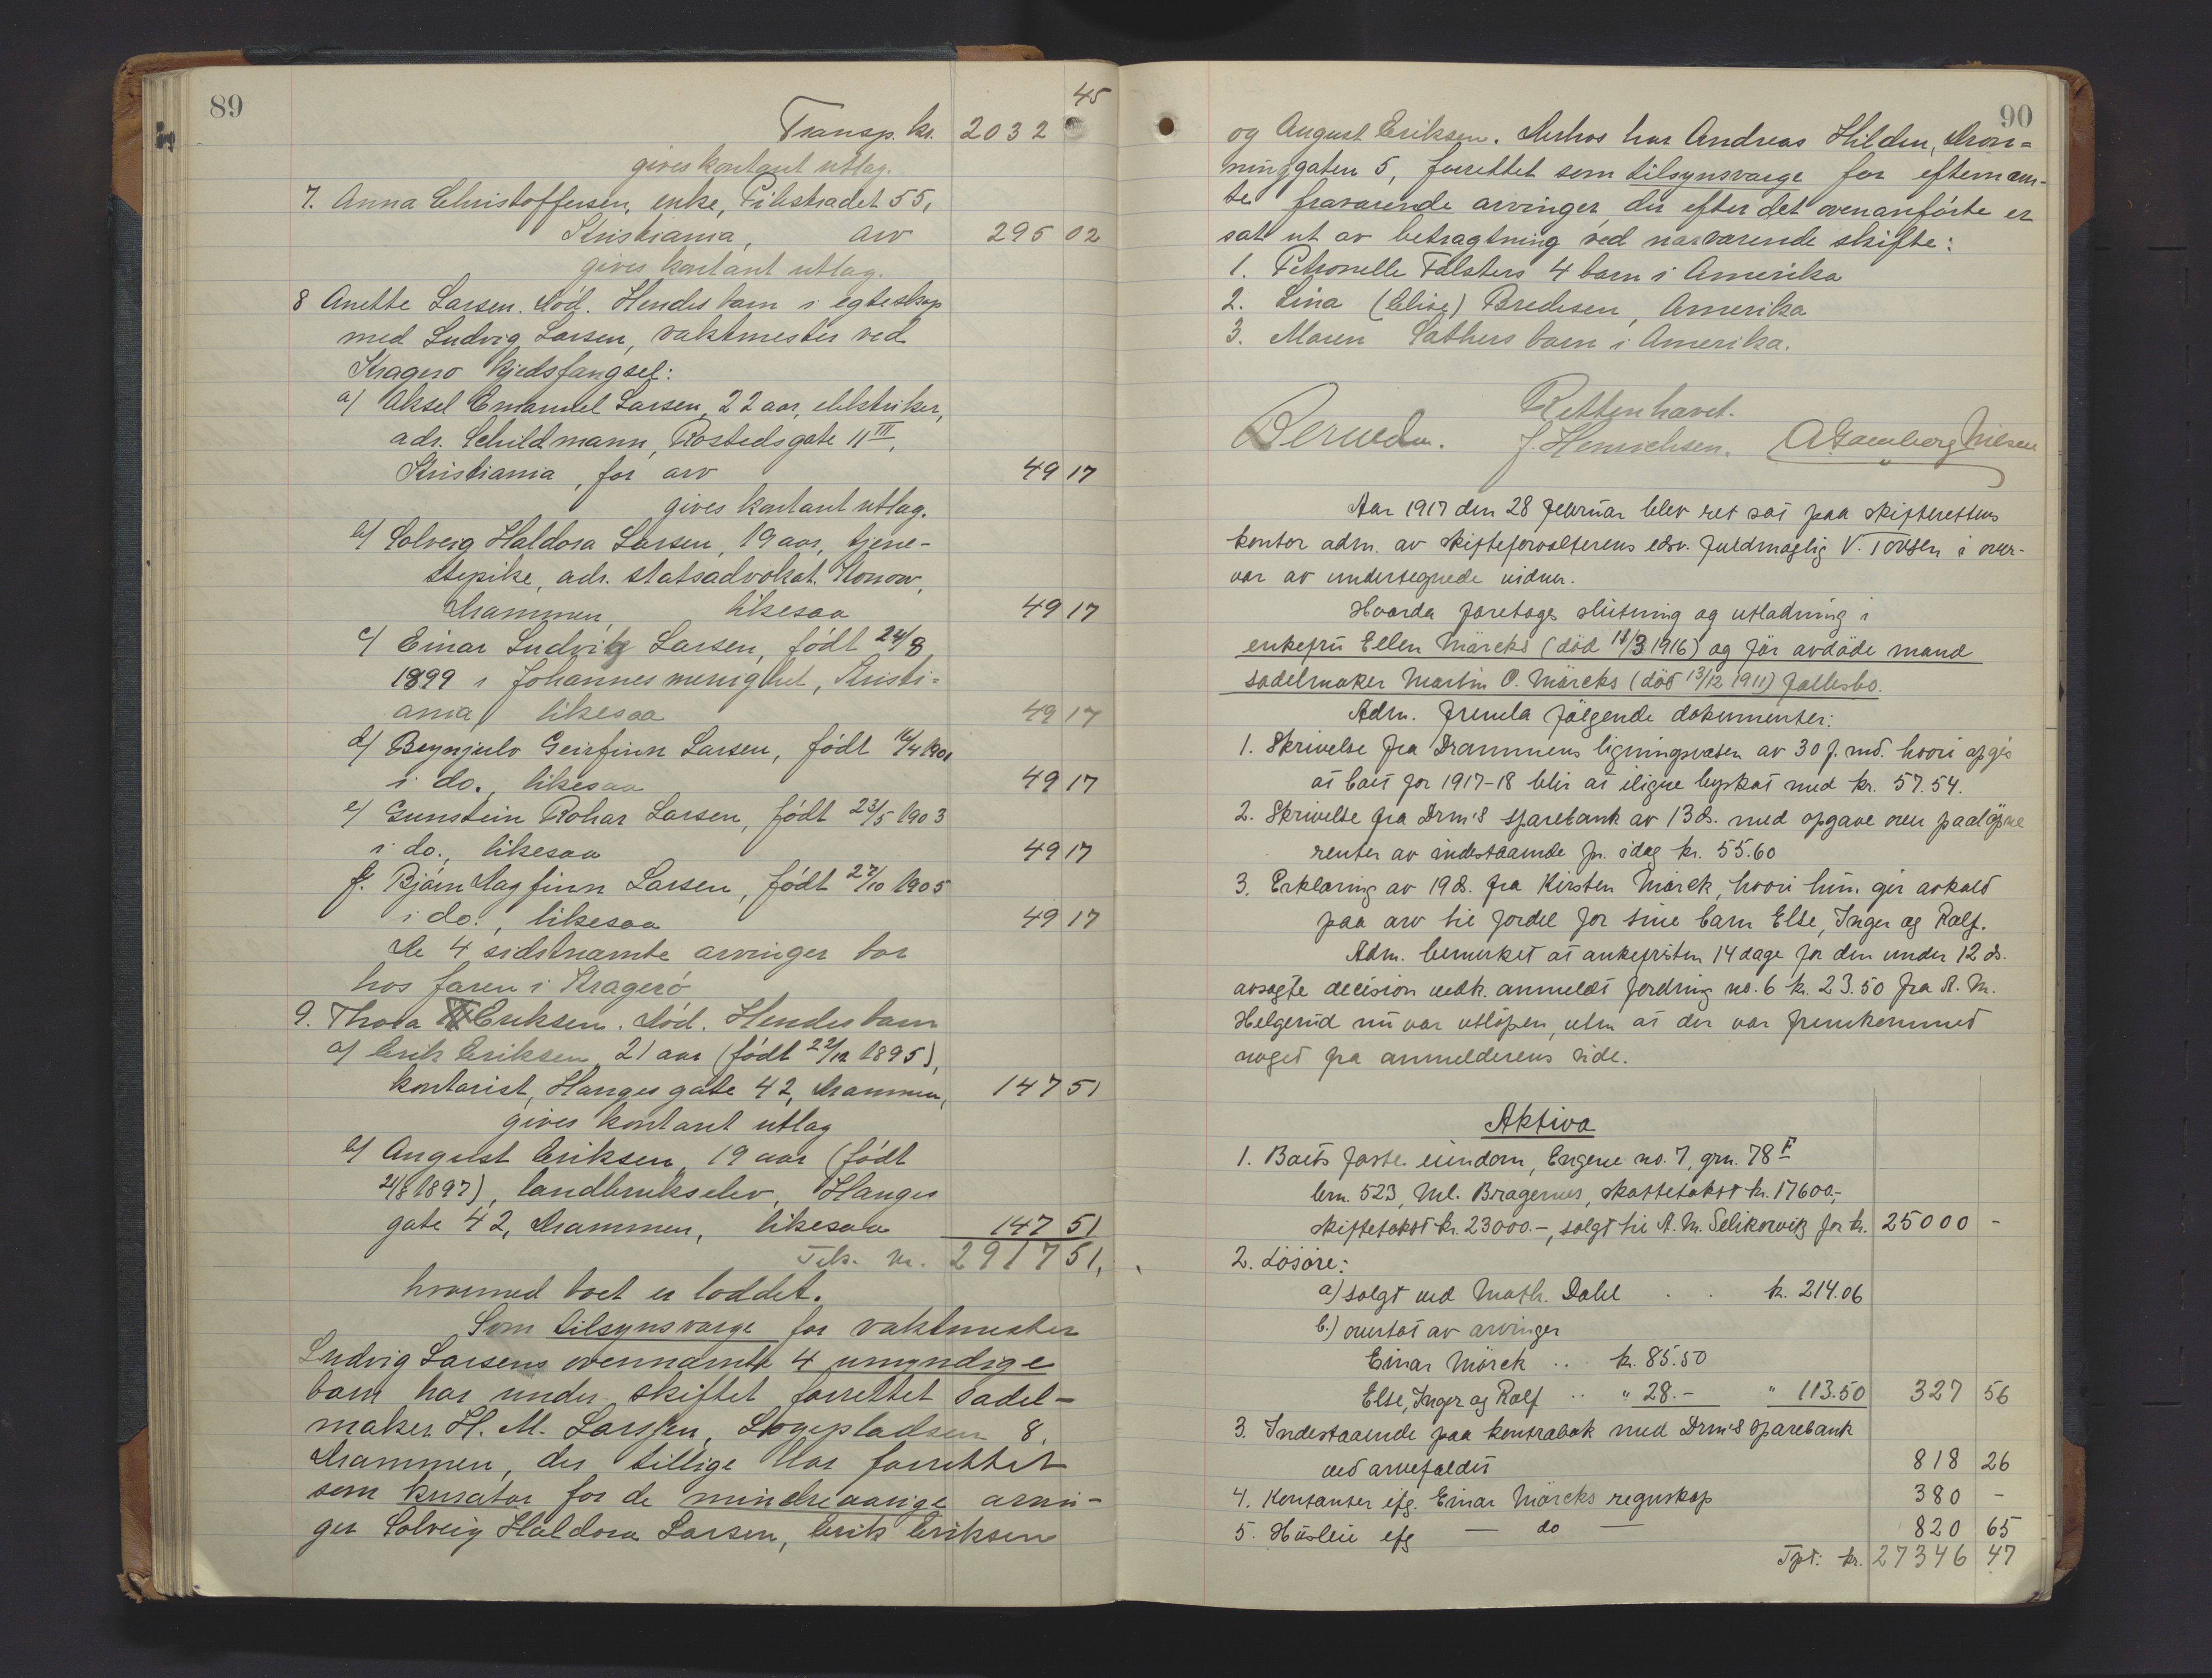 89
45
Transp. kr. 2032
gives kontant utlag.
7. Anna Christoffersen, enke, Pilestradet 55,
Kristiania, arv 295 02
gives kontant utlag.
8 Anette Larsen. Död. Hendes barn i egteskap
med Ludvig Larsen, vaktmester ved
Kragerö kjedsfangsel:
a/ Aksel Emanuel Larsen, 22 aar, elektriker,
adr. Schildmann, Rostedsgate 11 III,
Kristiania, for arv 49 17
gives kontant utlag.
b/ Solveig Haldora Larsen, 19 aar, tjene-
stepike, adr. statsadvokat Konow,
Drammen, likesaa 49 17
c/ Einar Ludvig Larsen, födt 24/8
1899 i Johannes menighet, Kristi-
ania, likesaa 49 17
d/ Brynjulv Geirfinn Larsen, födt 16/4 1901
i do., likesaa 49 17
e/ Gunstein Rohar Larsen, födt 23/5 1903
i do., likesaa 49 17
f. Björn Dagfinn Larsen, födt 27/10 1905
i do., likesaa 49 17
De 4 sidstnamte arvinger bor
hos faren i Kragerö
9. Thora Eriksen. Död. Hendes barn
a/ Erik Eriksen, 21 aar (födt 22/12 1895),
kontorist, Hauges gate 42, Drammen, 147 51
gives kontant utlag
b/ August Eriksen, 19 aar (födt
21/8 1897), landbrukselev, Hauges
gate 42, Drammen, likesaa 147 51
Tils. kr. 2917 51,
hvormed boet er loddet.
Som tilsynsvarge for vaktmester
Ludvig Larsens ovennamte 4 umyndige
barn har under skiftet forrettet sadel-
maker H. M. Larssen, Logepladsen 8,
Drammen, der tillige har forrettet
som kurator for de mindreaarige arvin-
ger Solveig Haldora Larsen, Erik Eriksen
90
og August Eriksen. Derhos har Andreas Hilden, Dron-
ninggaten 5, forrettet som tilsynsvarge for efternavn-
te fravarende arvinger, der efter det ovenanförte er
sat ut av betragtning ved narvarende skifte:
1. Petronelle Falsters 4 barn i Amerika
2. Lina (Elise) Bredesen, Amerika
3. Maren Sathers barn i Amerika.
Retten havet.
J. Henrichsen. Nilsen
Aar 1917 den 28 februar blev ret sat paa skifterettens
kontor adm. av skifteforvalterens edsv. fuldmægtig V. Torsen i over-
var av undertegnede vidner.
Hvorda foretoges slutning og utlodning i
enkefru Ellen Mörcks (död 11/3 1916) og för avdöde mand
sadelmaker Martin O. Mörcks (död 13/12 1911) fællesbo.
Adm. fremla fölgende dokumenter:
1. Skrivelse fra Drammens ligningsvæsen av 30 f. md. hvori opgis
at boet for 1917-18 blir at iligne byskat med kr. 57.54.
2. Skrivelse fra Drm's sparebank av 13 ds. med opgave over paalöpne
renter av indestaaende pr. idag kr. 55.60
3. Erklæring av 19 ds. fra Kirsten Mörck, hvori hun gir avkald
paa arv til fordel for sine barn Else, Inger og Ralf.
Adm. bemerket at ankefristen 14 dage for den under 12 ds.
avsagte decision vedk. anmeldt fordring no. 6 kr. 23.50 fra A. M.
Helgerud nu var utlöpen, uten at der var fremkommet
noget fra anmelderens side.
Aktiva
1. Boets faste eiendom, Engene no. 7, grn. 78 F
brn. 523, Ml. Bragernes, skattetakst kr. 17600,-
skiftetakst kr. 23000.-, solgt til A. M. Selikorvik for kr. 25000 -
2. Lösöre:
a) solgt ved Math. Dahl . . kr. 214.06
b.) overtat av arvinger
Einar Mörck .. kr. 85.50
Else, Inger og Ralf .. " 28.- " 113.50 327 56
3. Indestaaende paa kontrabok med Drm's sparebank
ved arvefaldet 818 26
4. Kontanter efg. Einar Mörcks regnskap 380 -
5. Husleie efg — do — 820 65
Tpt: kr. 27346 47